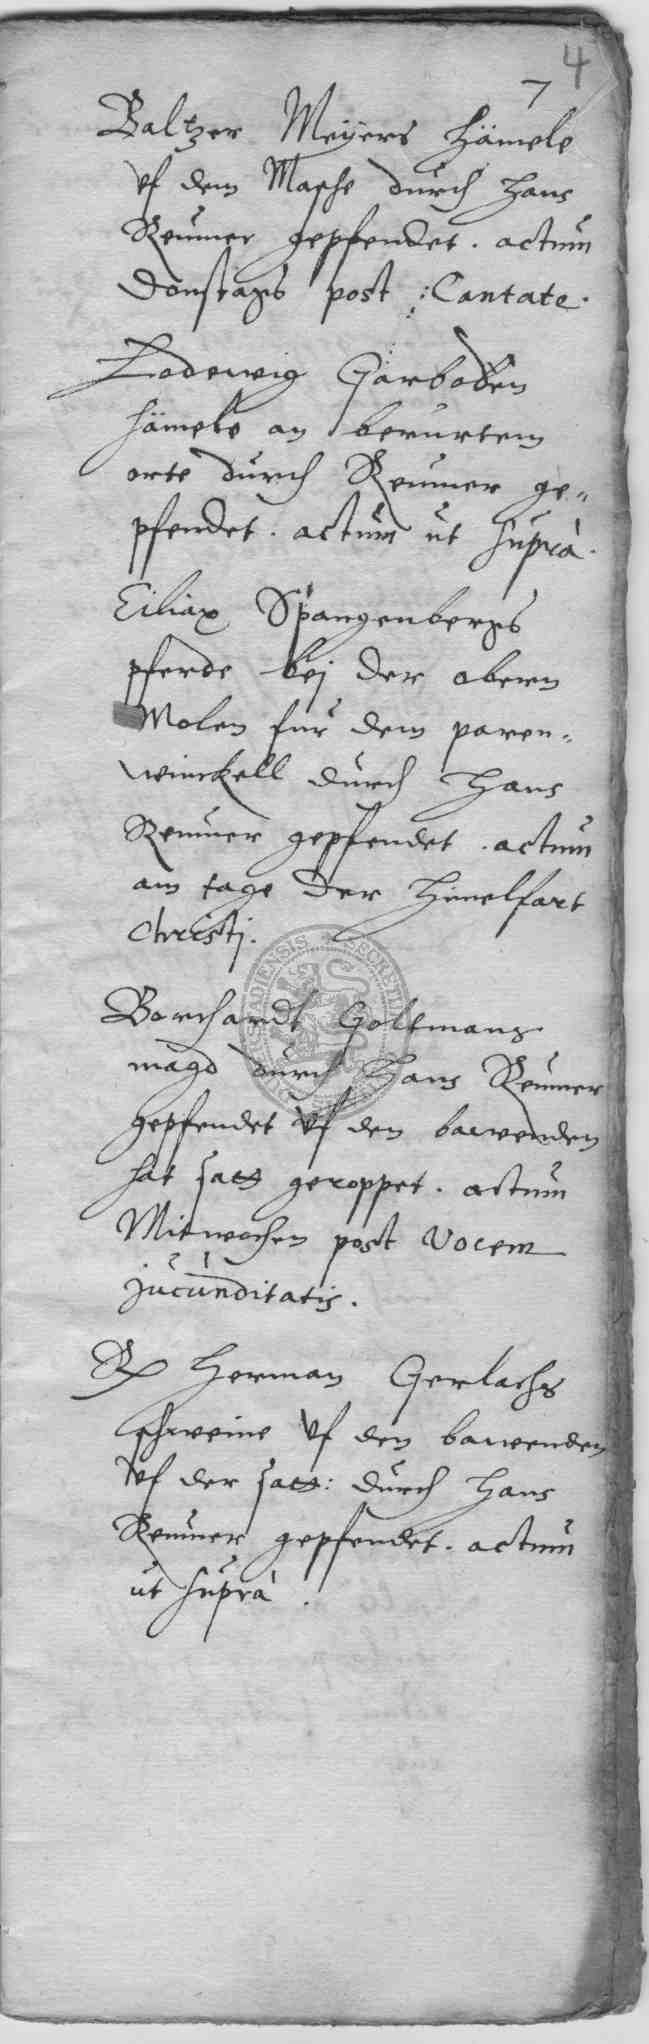 4
7
Baltzer Meÿers hämele
vf dem Masche durch Hans
Reumer gepfendet. actum
Donstags post Cantate.
Lodewig Garboden
hämele an berurtem
orte durch Reumer ge„
pfendet. actum ut suprà.
Ciliax Spangenbergs
pferde bej der obern
Molen fur dem paren„
winckell durch Hans
Reumer gepfendet. actum
am tage der Himelfart
Christj.
Borchardt Goltmans
magd durch Hans Reumer
gepfendet vf den bawenden
hat satt geroppet. actum
Mitwochen post Vocem
jucunditatis.
Herman Gerlachs
schweine vf den bawenden
vf der satt: durch Hans
Reumer gepfendet. actum
ut suprà.